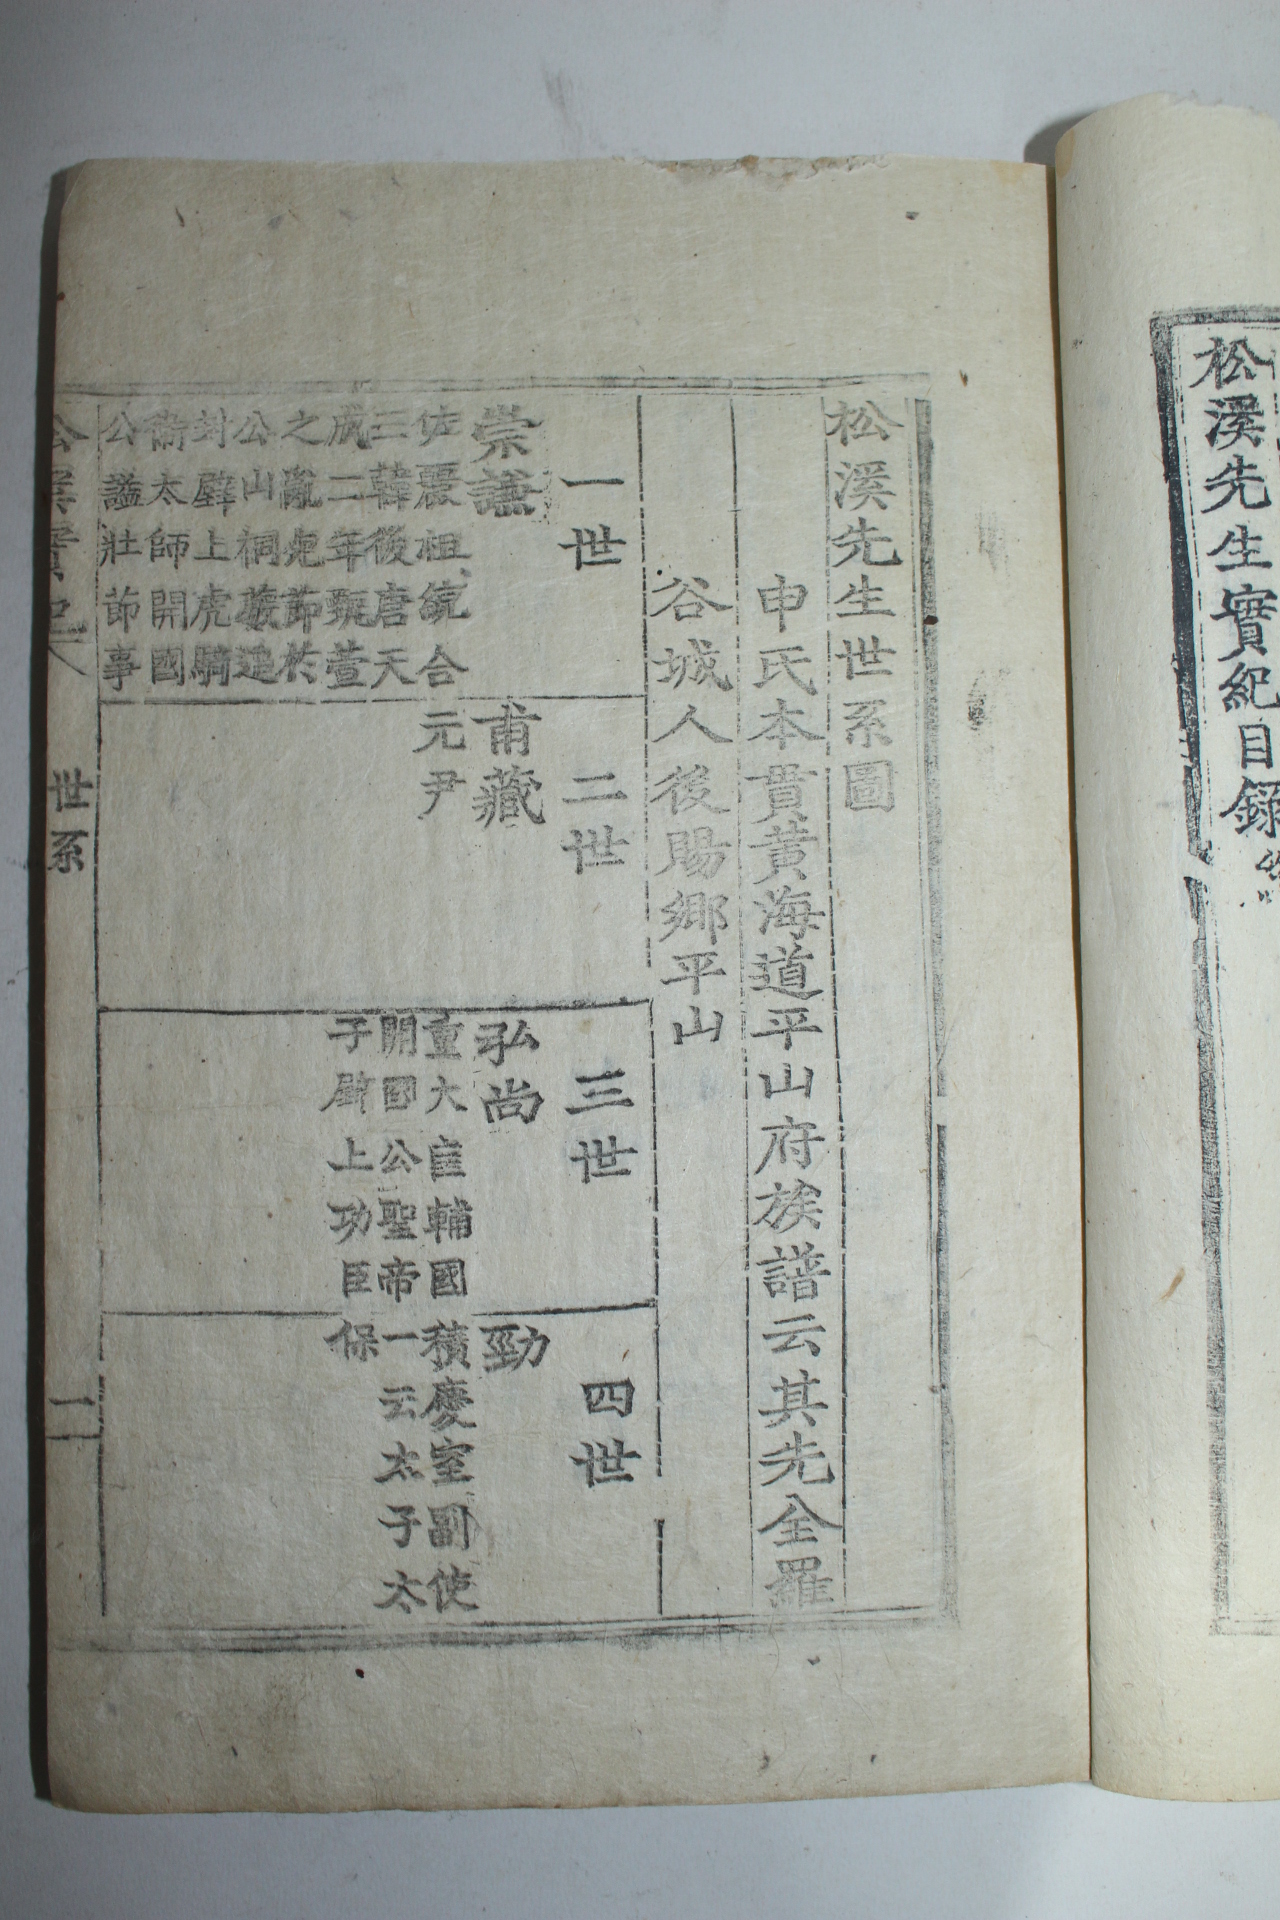 松溪先生實紀目錄
松溪先生世系圖
申氏本貫黃海道平山府族譜云其先全羅
谷城人後賜鄉平山
一世
崇謙
佐麗祖統合
三韓後唐天
成二年甄萱
之亂死節於
公山桐藪追
封壁上虎騎
衛太師開國
公諡壯節事
二世
甫藏
元尹
三世
弘尚
重大匡輔國
開國公聖帝
子壁上功臣
四世
勁
積慶室副使
一云太子太
保
世系
二